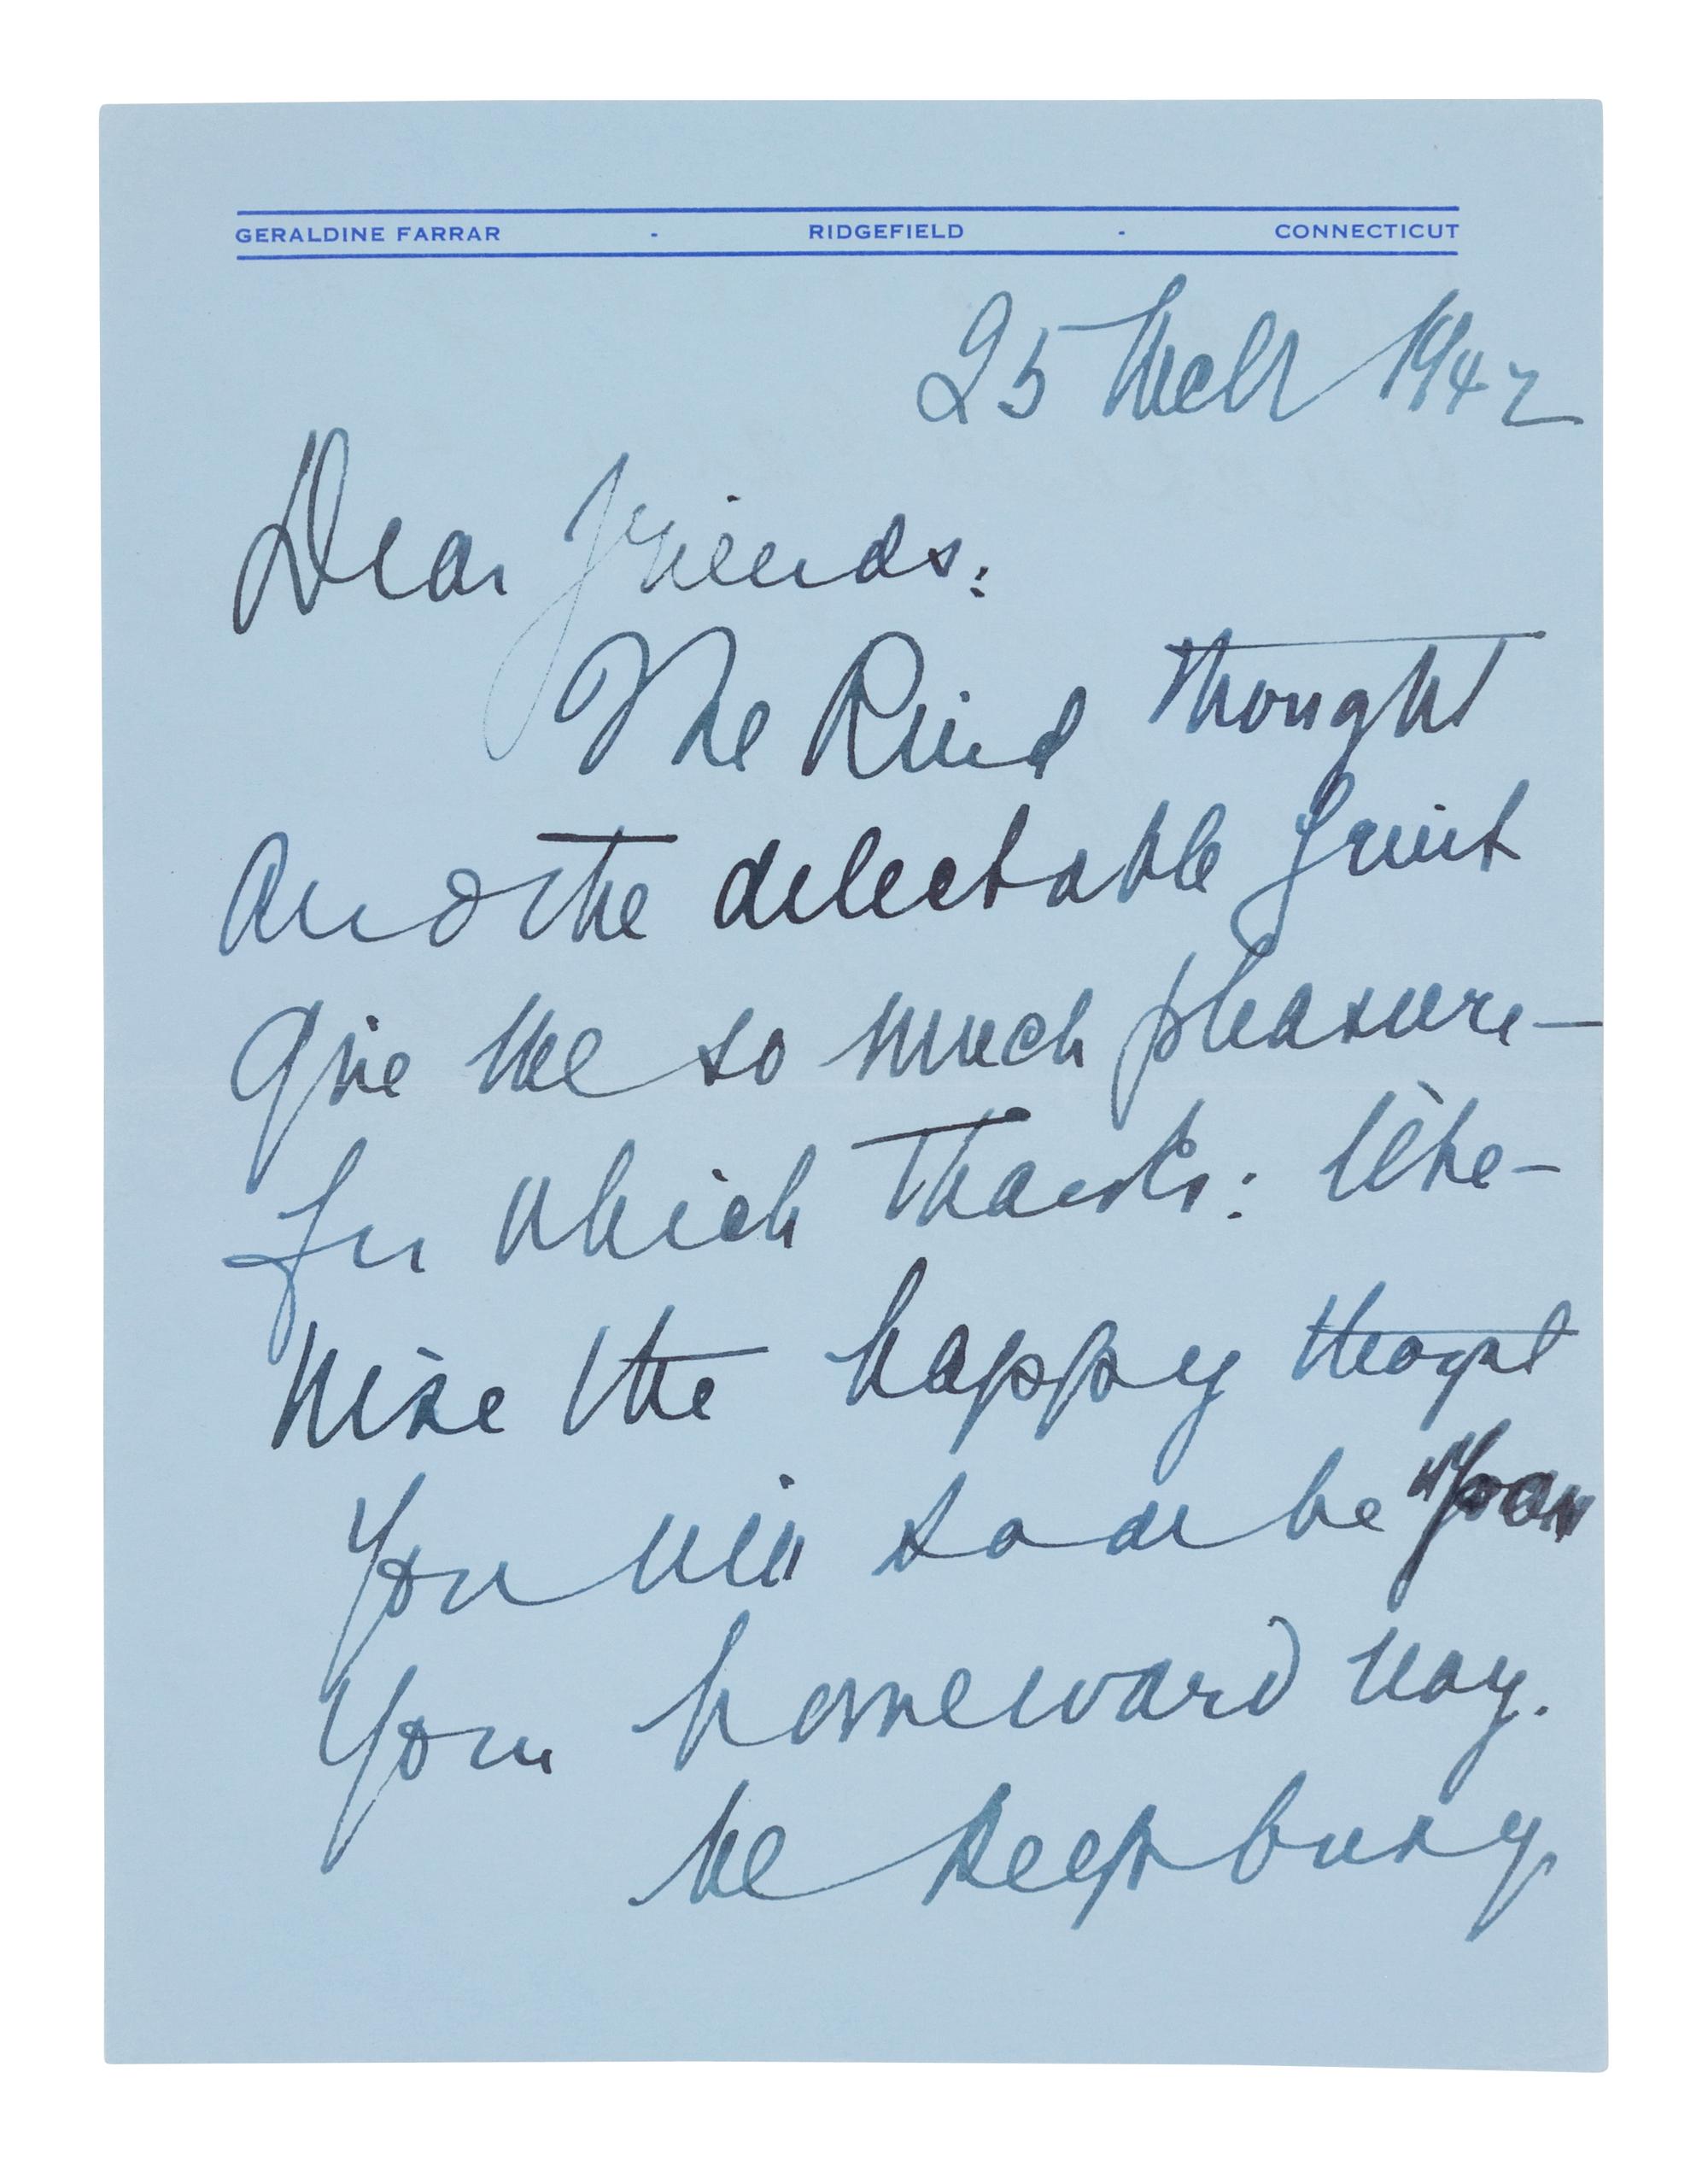 GERALDINE FARRAR - RIDGEFIELD - CONNECTICUT
25 Mch 1942
Dear friends:
The kind thought
and the delectable fruit
give me so much pleasure—
for which thanks: like-
wise the happy thought
you will soon be upon
your homeward way.
We keep busy